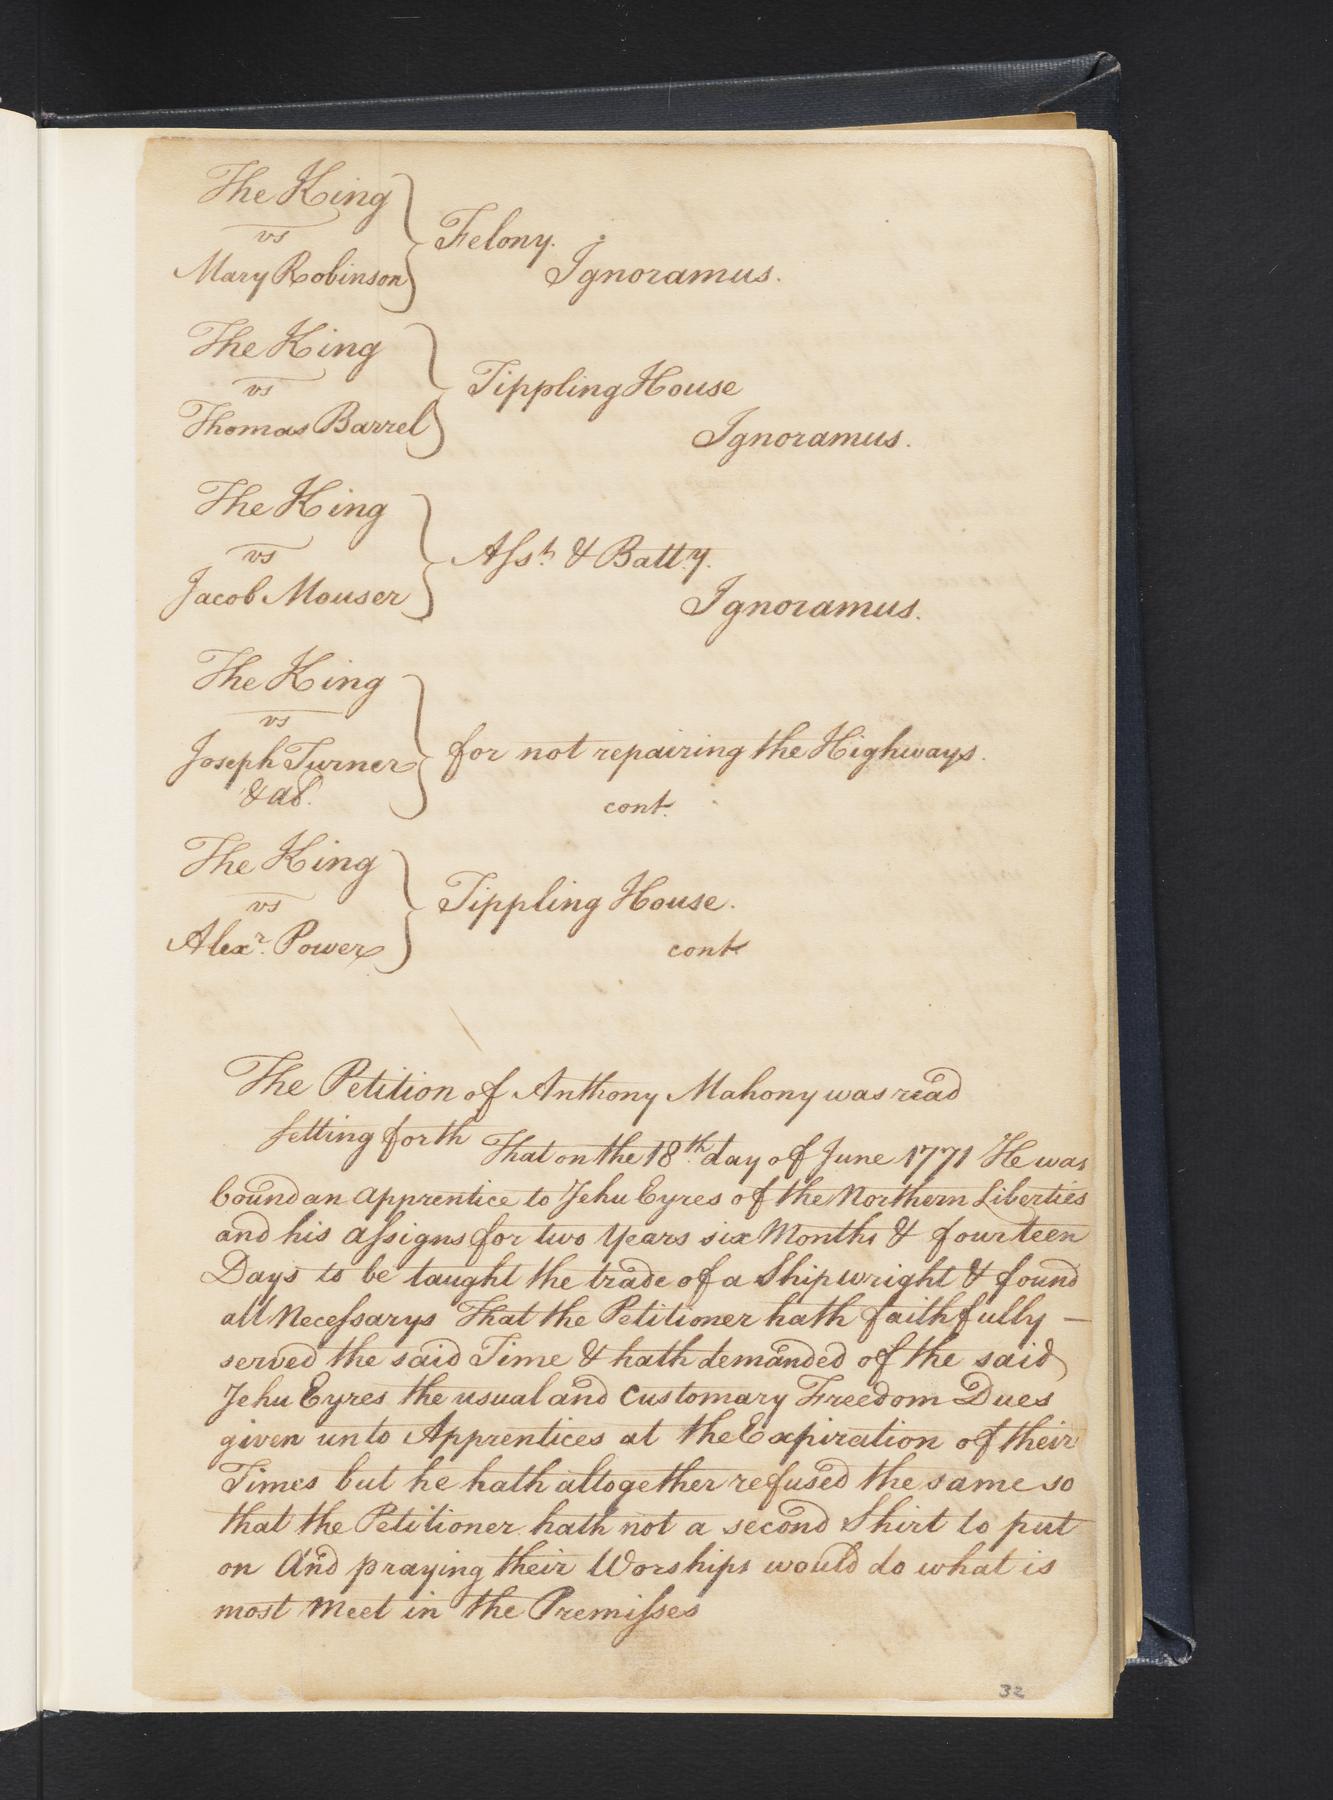 The King
vs
Mary Robinson
Felony.
Ignoramus.
The King
vs
Thomas Barrel
Tippling House
Ignoramus.
The King
vs
Jacob Mouser
Aſst. & Batty.
Ignoramus.
The King
vs
Joseph Turner
& al.
for not repairing the Highways.
cont.
The King
vs
Alexr. Power
Tippling House.
cont
The Petition of Anthony Mahony was read
ſetting forth That on the 18th. day of June 1771 He was
bound an apprentice to Jehu Eyres of the Northern Liberties
and his aſsigns for two Years six Months & fourteen
Days to be taught the trade of a Shipwright & found
all Neceſsarys That the Petitioner hath faithfully —
served the said Time & hath demanded of the said
Jehu Eyres the usual and Customary Freedom Dues
given unto Apprentices at the Expiration of their
Times but he hath altogether refused the same so
that the Petitioner hath not a second Shirt to put
on And praying their Worships would do what is
most Meet in the Premiſses
32